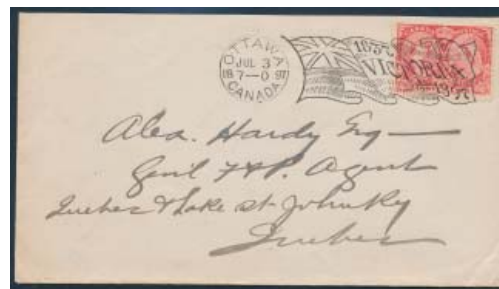 OTTAWA
JUL 3
18 7—0 97
CANADA
1837
VICTORIA
1897
Alex. Hardy Esq —
Genl F & P. Agent
Quebec & Lake St John Ry
Quebec